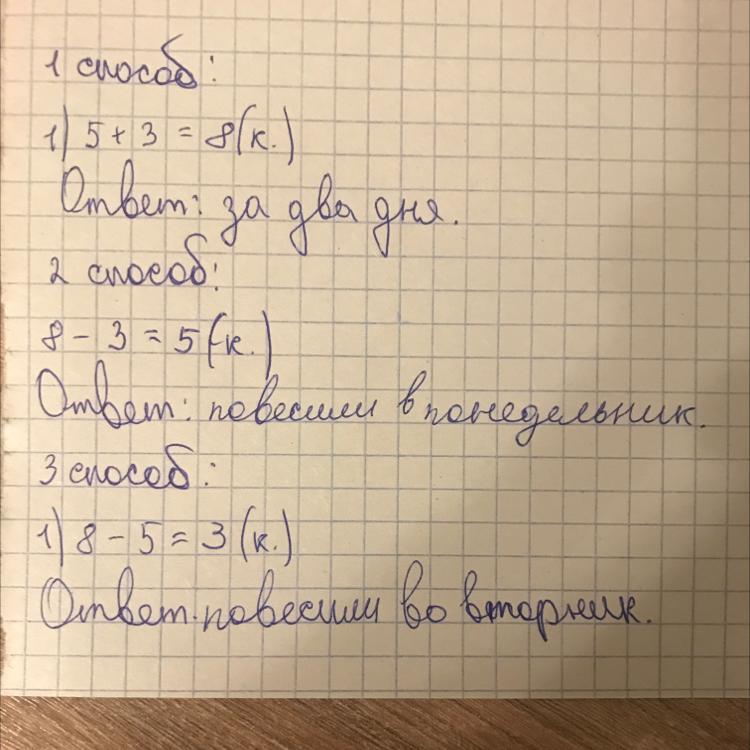 1 способ:
1) 5 + 3 = 8 (к.)
Ответ: за два дня.
2 способ:
8 - 3 = 5 (к.)
Ответ: повесили в понедельник.
3 способ:
1) 8 - 5 = 3 (к.)
Ответ. повесили во вторник.